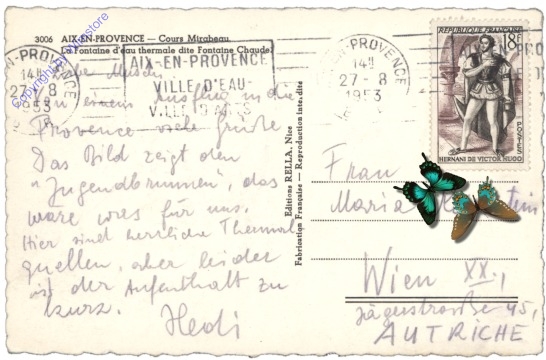 3006 AIX-EN-PROVENCE — Cours Mirabeau.
La Fontaine d'eau thermale dite Fontaine Chaude.
Copyright by Millstore
AIX-EN-PROVENCE
14H
27-8
1953
AIX-EN-PROVENCE
VILLE D'EAU
VILLE D'ARTS
AIX-EN-PROVENCE
14H
27-8
1953
RÉPUBLIQUE FRANÇAISE
18F
POSTES
HERNANI DE VICTOR HUGO
Von einem Ausflug in die
Provence viele Grüße
Das Bild zeigt den
"Jugendbrunnen", das
wäre was für uns.
Hier sind herrliche Thermal
quellen, aber leider
ist der Aufenthalt zu
kurz. Hedi
Editions RELLA, Nice
Fabrication Française — Reproduction inte.dite
Frau
Maria
Wien XX.,
Jägerstraße 45,
AUTRICHE